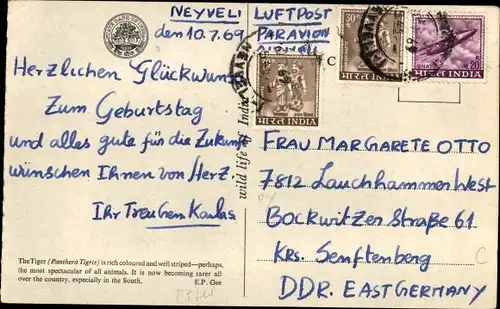 NEYVELI
den 10.7.69
LUFTPOST
PARAVION
Herzlichen Glückwun
Zum Geburtstag
und alles gute für die Zukunft
wünschen Ihnen von Herz
Ihr Treuben Kaulas
The Tiger (Panthera Tigris) is rich coloured and well striped—perhaps,
the most spectacular of all animals. It is now becoming rarer all
over the country, especially in the South. E.P. Gee
wild life of India
भारत INDIA
30 भारत INDIA
GNAT 20
भारत INDIA
FRAU MARGARETE OTTO
7812 Lauchhammer West
BOCKWITZER STRAßE 61
KRS. SENFTENBERG
DDR. EAST GERMANY
C